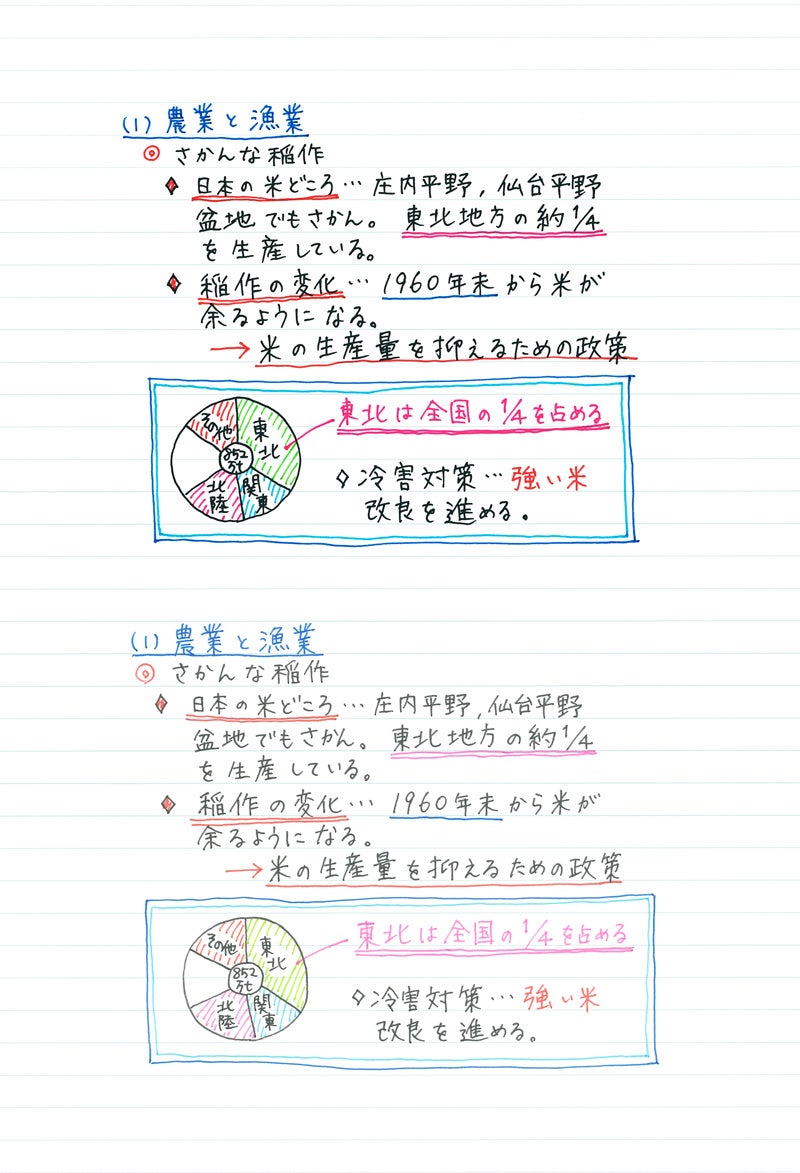 (1) 農業と漁業
◎ さかんな稲作
♦ 日本の米どころ… 庄内平野, 仙台平野
盆地でもさかん。 東北地方の約1/4
を生産している。
♦ 稲作の変化… 1960年末から米が
余るようになる。
→ 米の生産量を抑えるための政策
東北は全国の1/4を占める
その他
東北
852万t
北陸
関東
◇冷害対策…強い米
改良を進める。
(1) 農業と漁業
◎ さかんな稲作
♦ 日本の米どころ… 庄内平野, 仙台平野
盆地でもさかん。 東北地方の約1/4
を生産している。
♦ 稲作の変化… 1960年末から米が
余るようになる。
→ 米の生産量を抑えるための政策
東北は全国の1/4を占める
その他
東北
852万t
北陸
関東
◇冷害対策…強い米
改良を進める。